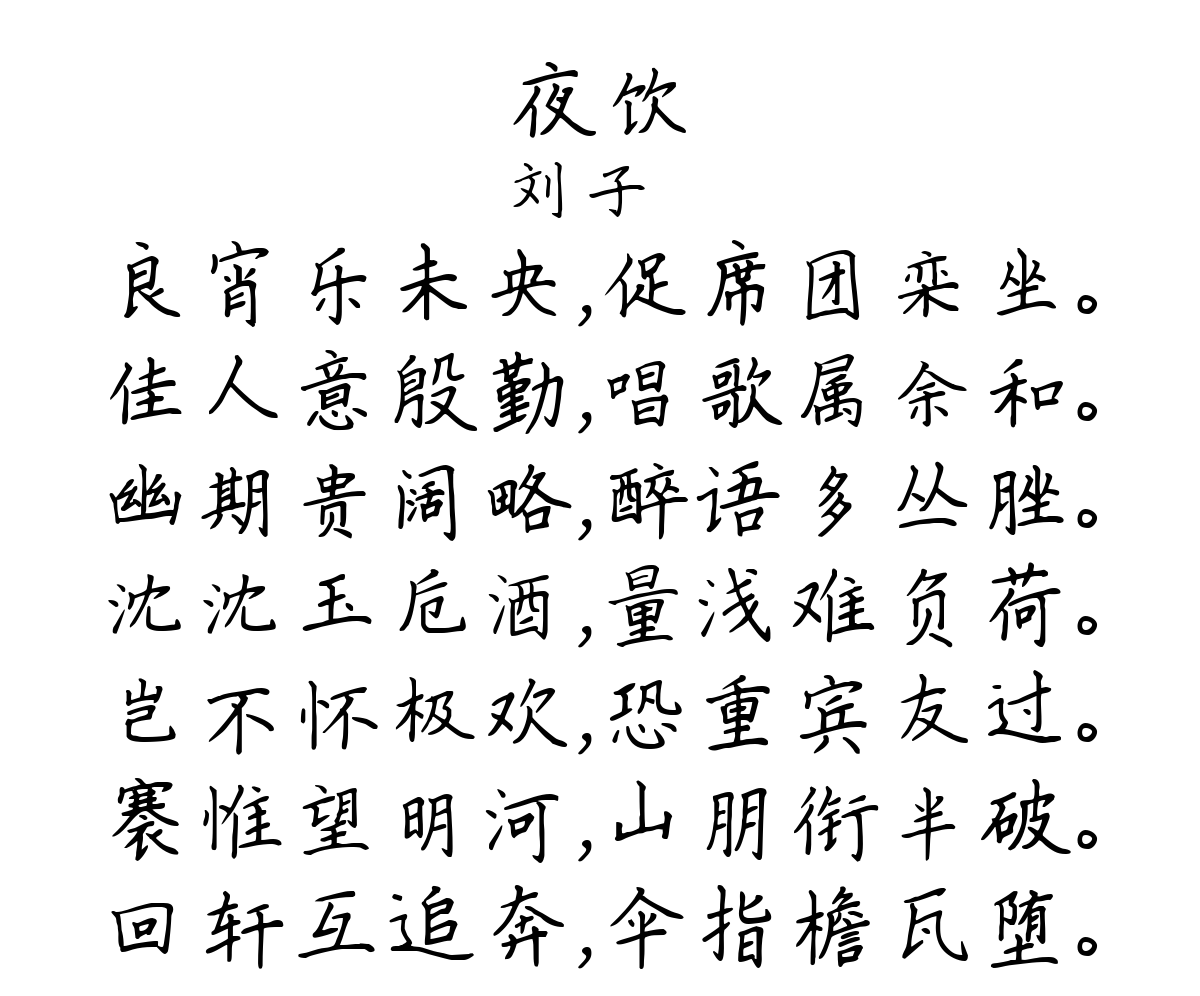 夜饮
刘子
良宵乐未央,促席团栾坐。
佳人意殷勤,唱歌属余和。
幽期贵阔略,醉语多丛脞。
沈沈玉卮酒,量浅难负荷。
岂不怀极欢,恐重宾友过。
褰惟望明河,山朋衔半破。
回轩互追奔,伞指檐瓦堕。